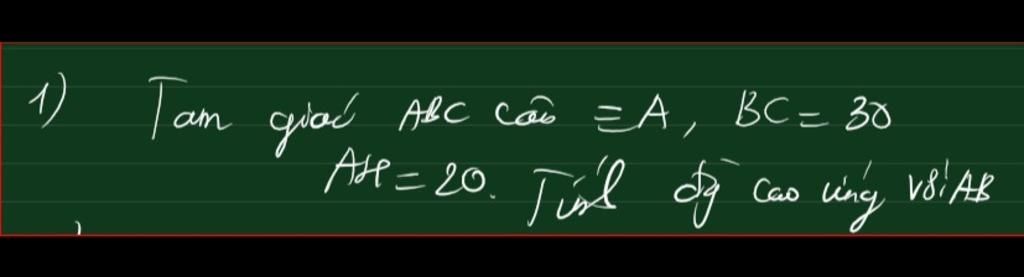 1) Tam giác ABC cân ≡A, BC = 30
AH = 20. Tính đg cao ứng với AB